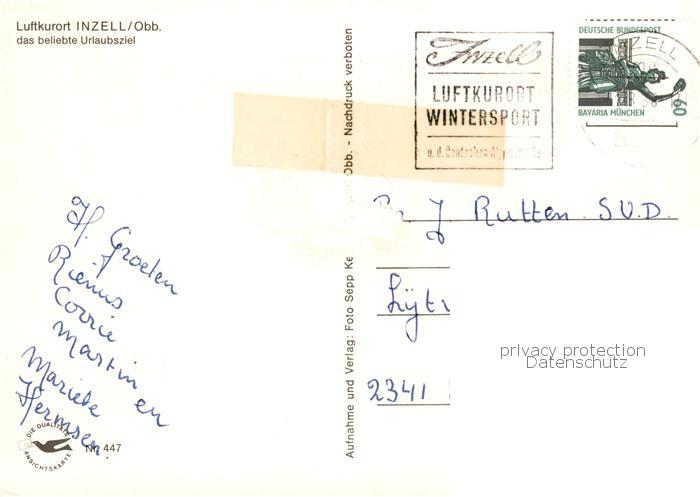 Luftkurort INZELL/Obb.
das beliebte Urlaubsziel
H. Groeten
Rienus
Corrie
Martin en
Marieke
Hermsen.
DIE QUALITÄTS
ANSICHTSKARTE
Nr. 447
Aufnahme und Verlag: Foto Sepp Ke
Obb. - Nachdruck verboten
Inzell
LUFTKURORT
WINTERSPORT
a. d. Deutschen Alpenstraße
DEUTSCHE BUNDESPOST
60
BAVARIA MÜNCHEN
INZELL
J Rutten S.V.D.
2341
privacy protection
Datenschutz